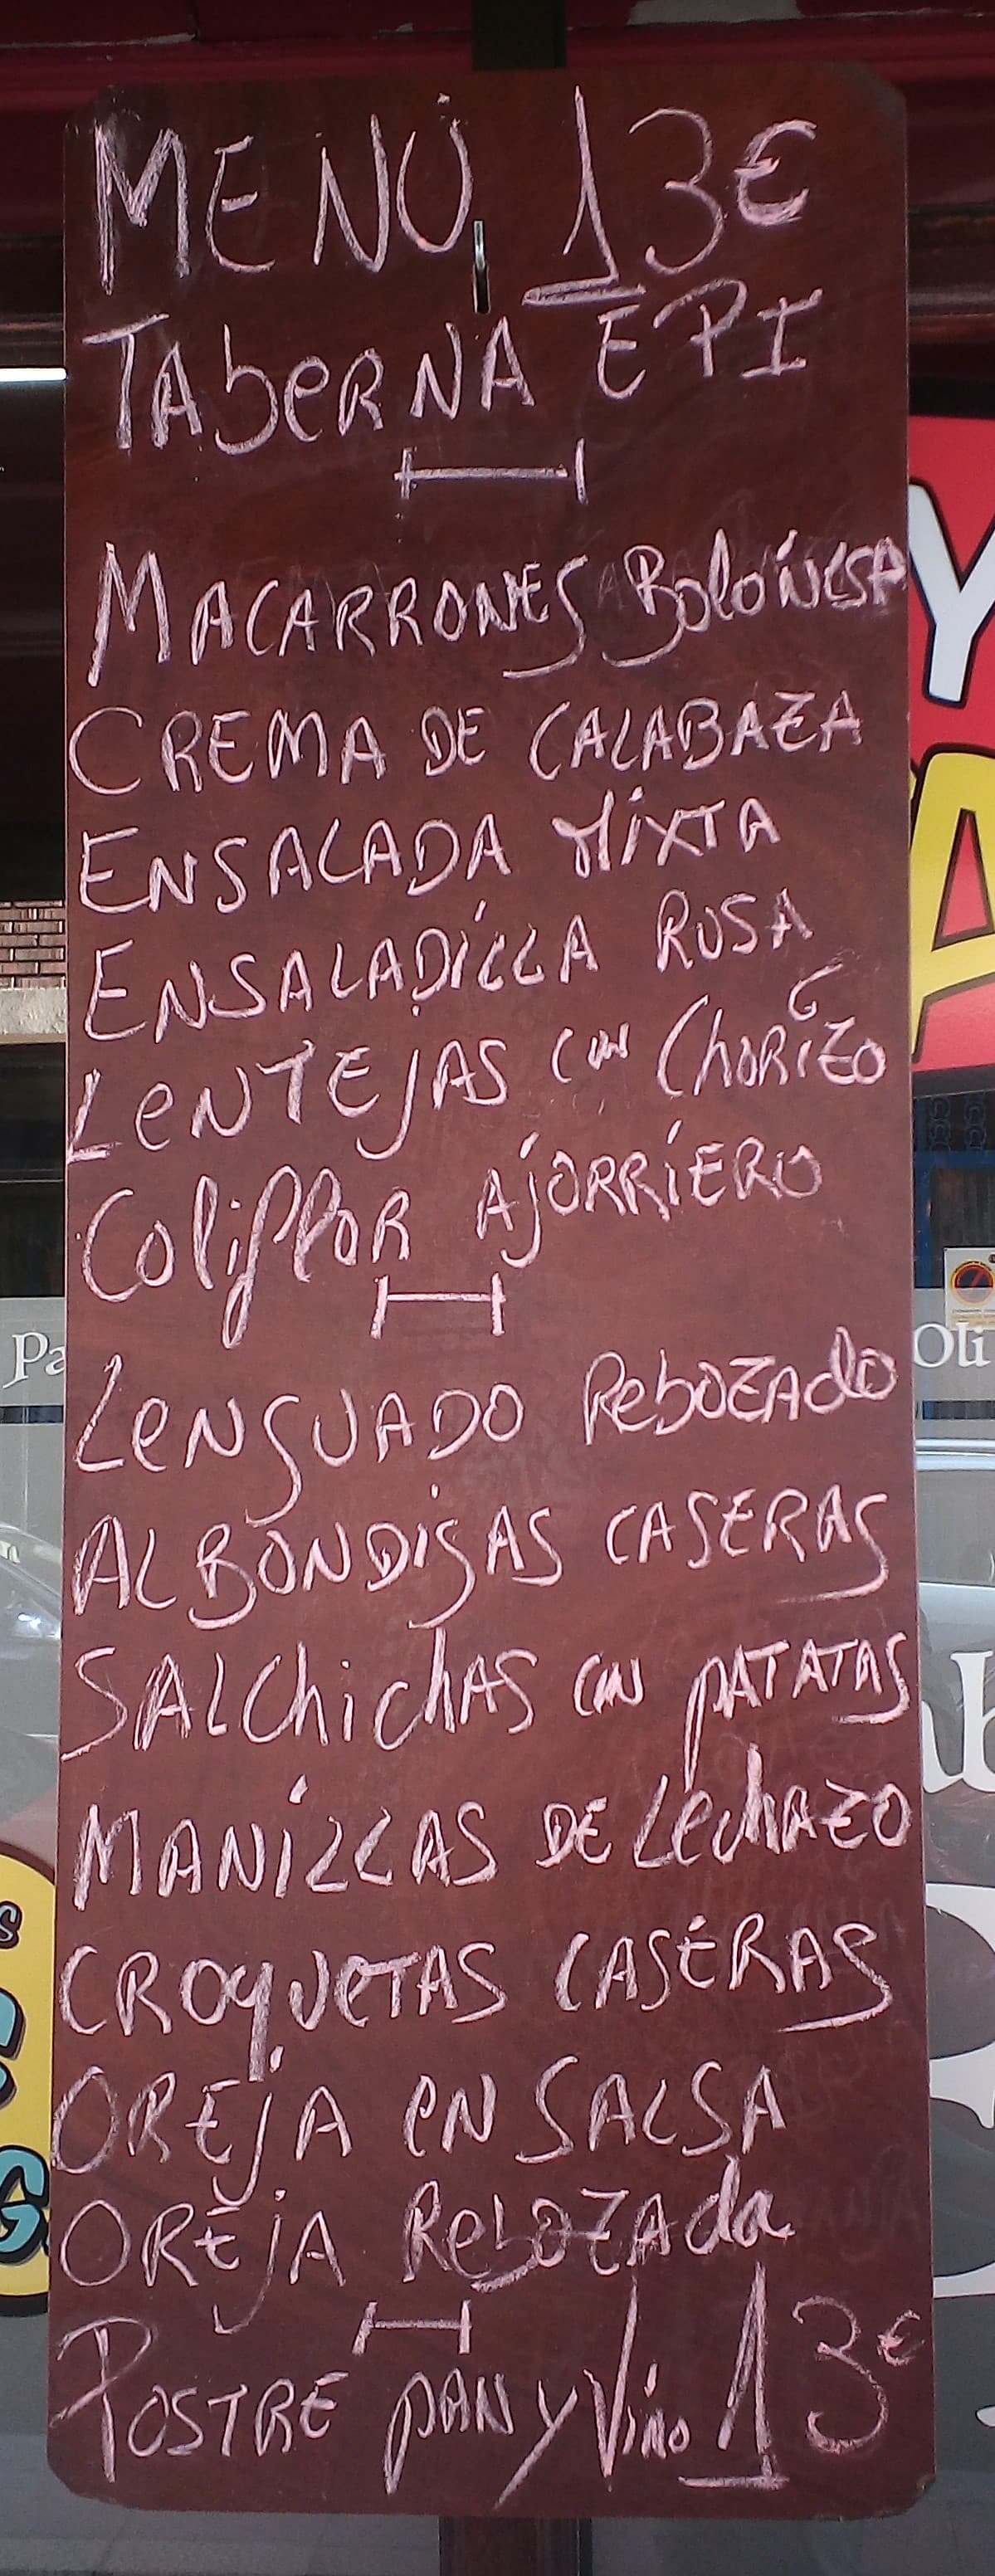 MENÚ 13€
TAbeRNA EPI
MACARRONES BoloÑesA
CREMA DE CALABAZA
ENSALADA MiXTA
ENSALADiLLA RUSA
LeNTEjAS CON ChORiZO
ColiflOR AjORRiERO
LeNgUADO RebOZAdo
ALBÓNDigAS CASERAS
SALChiChAS CON pATATAS
MANiLLAS DE LechAZO
CROqUeTAS CASERAS
OREjA eN SALSA
OREjA RebOZAda
POSTRE pAN y Vino 13€
Y
A
Pa
Oli
ab
s
G